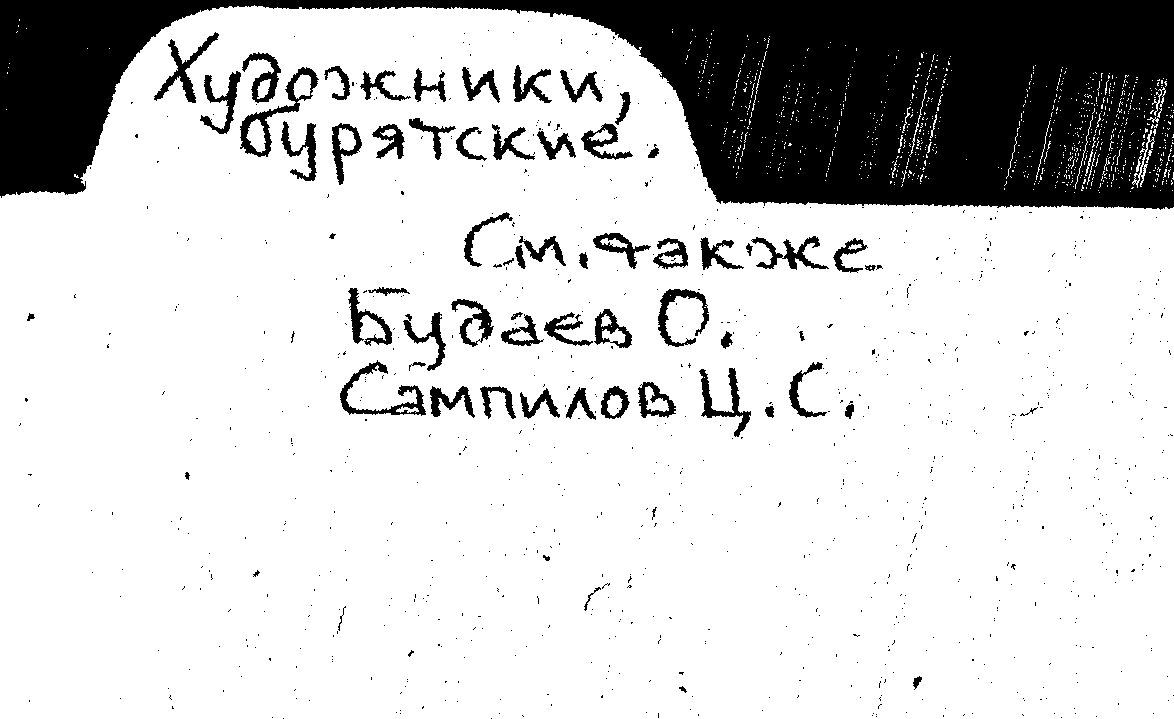 Художники,
бурятские.
См. также
Будаев О.
Сампилов Ц. С.